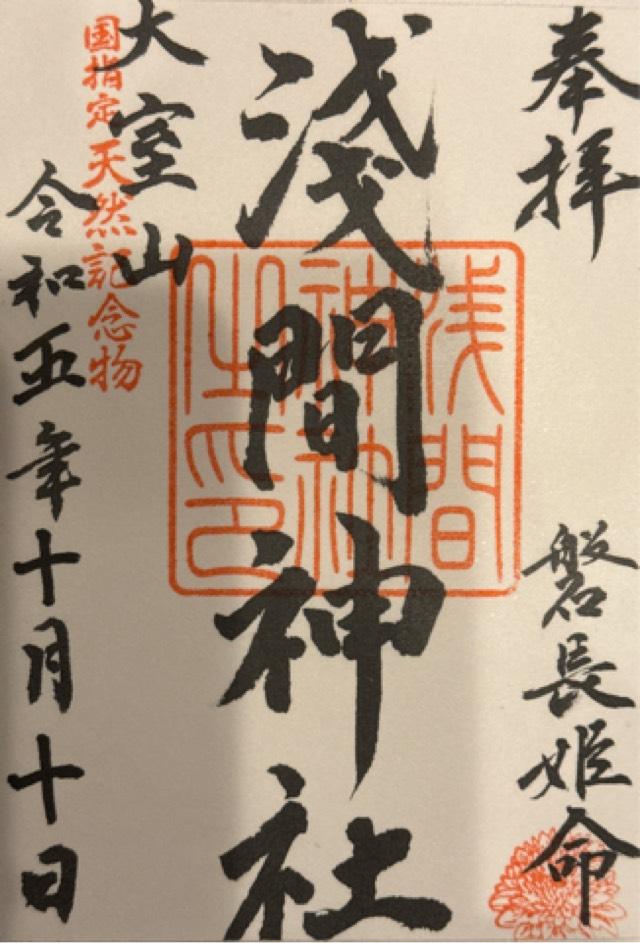 奉拝
磐長姫命
淺間神社
浅間
神社
之印
大室山
国指定天然記念物
令和五年十月十日